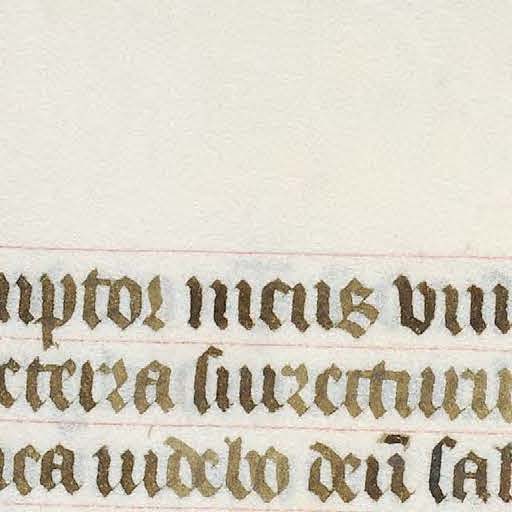 mptor meus viui
de terra surrecturu
mea uidebo deū sal